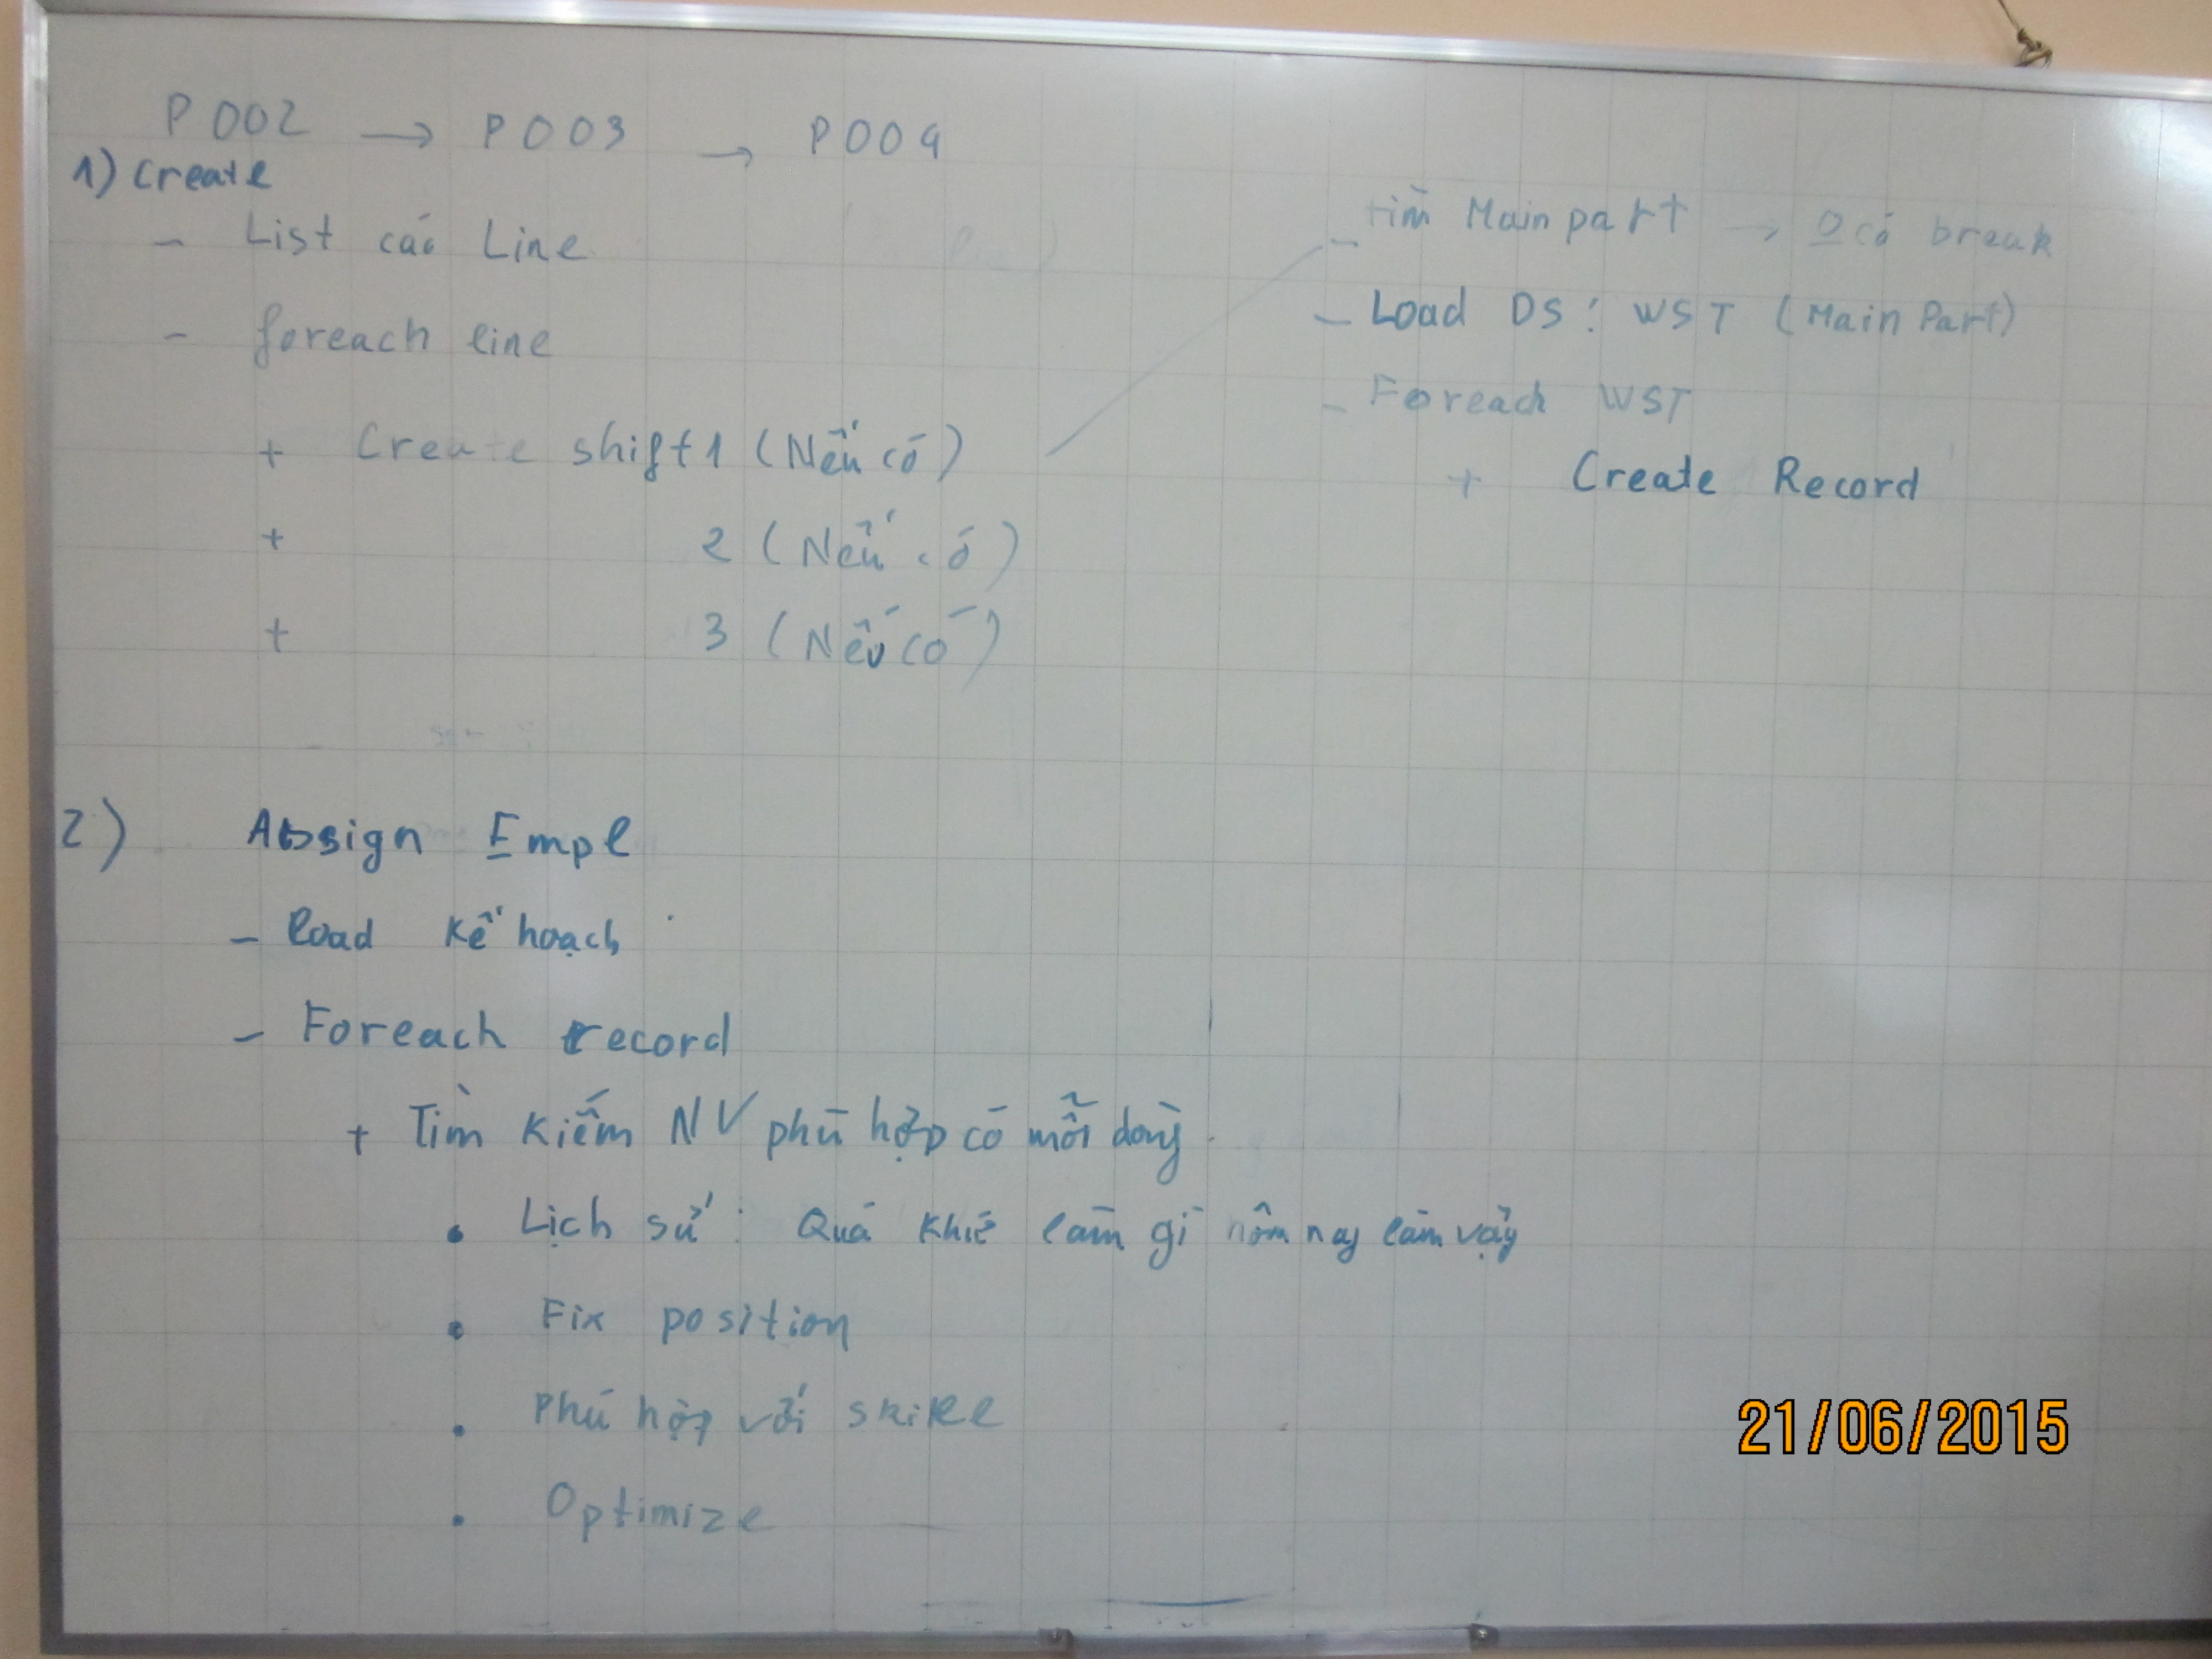 P002 → P003 → P004
1) Create
- List các Line
- foreach line
+ Create shift 1 (Nếu có)
+ 2 (Nếu có)
+ 3 (Nếu có)
- tìm Main part → 0 có break
- Load DS: WST (Main Part)
- Foreach WST
+ Create Record
2) Assign Empl
- load kế hoạch
- Foreach record
+ Tìm kiếm NV phù hợp có mỗi dòng
• Lịch sử: Quá khứ làm gì hôm nay làm vậy
• Fix position
• Phù hợp với skill
• Optimize
21/06/2015